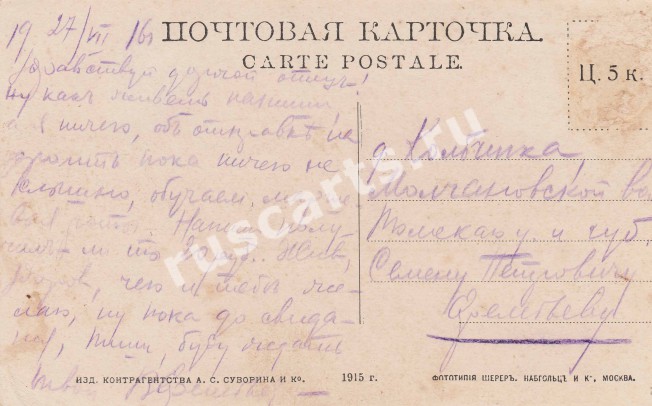 19 27/VII 16
ПОЧТОВАЯ КАРТОЧКА.
CARTE POSTALE.
Ц. 5 к.
Здравствуй дорогой отецъ!
ну какъ живешь напиши
а я ничего, объ отправкѣ на
пока ничего не
слышно, обучаем
роты. Напиши полу-
ли ты 20 руб. Жив,
здоров, чего и тебѣ же-
лаю, ну пока до свида-
пиши, буду ждать
твой
д. Колбинка
Молчановской вол
Томскаго у. и губ.
Семену Петровичу
ИЗД. КОНТРАГЕНТСТВА А. С. СУВОРИНА И Ко. 1915 г. ФОТОТИПІЯ ШЕРЕРЪ, НАБГОЛЬЦЪ И Ко, МОСКВА.
ruscarts.ru